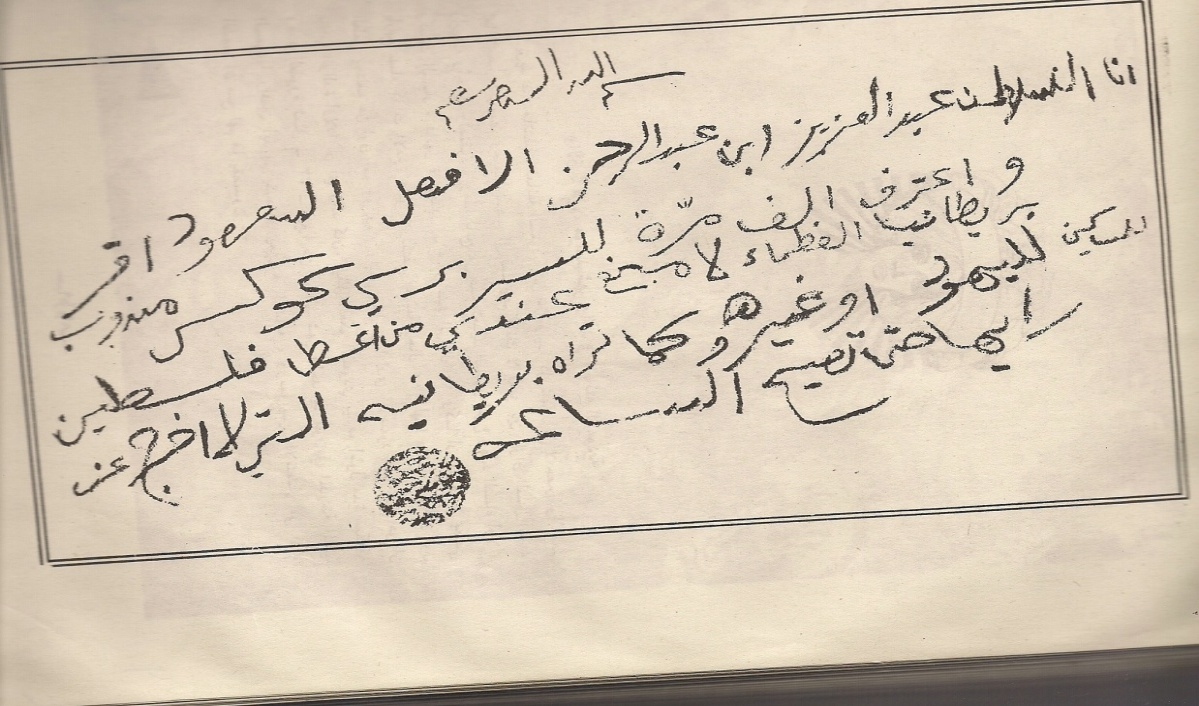 بسم الله الرحمن الرحيم
انا السلطان عبد العزيز ابن عبد الرحمن ال الفصل السعود اقر
و اعترف الف مرّة للسير برسي كوكس مندوب
بريطانيا العظماء لا مانع عندي من اعطا فلسطين
للمساكين لليهود او غيرهم وكما تراه بريطانيه التي لا اخرج عن
رايها حتى تصيح الساعه